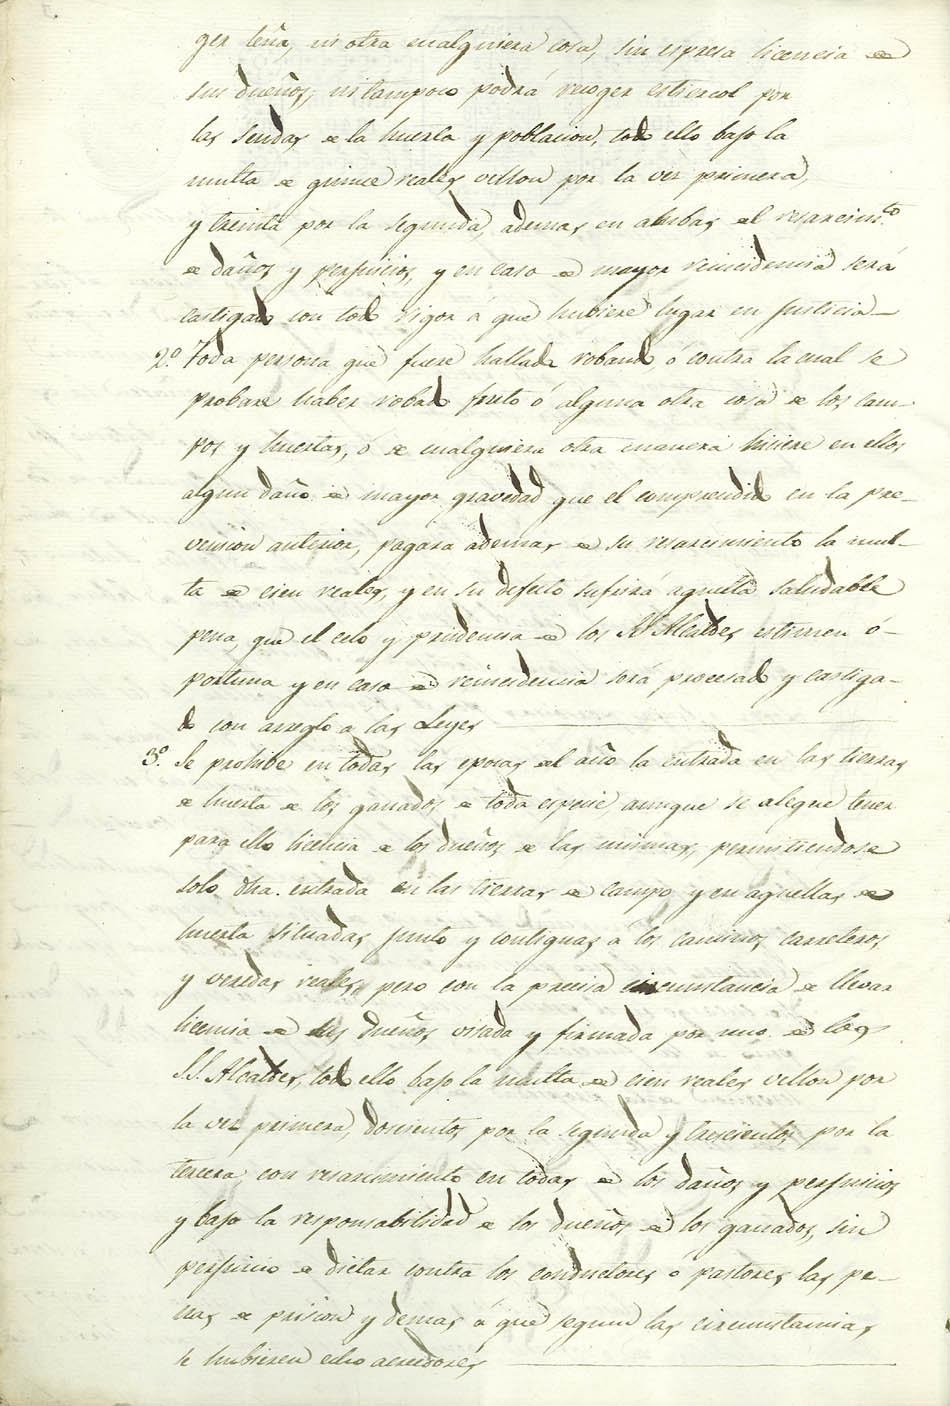 ger leña, ni otra cualquiera cosa, sin espresa licencia de
sus dueños; ni tampoco podrá recoger estiercol por
las sendas de la huerta y poblacion, todo ello bajo la
multa de quince reales vellon por la vez primera,
y treinta por la segunda, ademas en ambas del resarcimto
de daños y perjuicios, y en caso de mayor reincidencia será
castigado con todo rigor á que hubiere lugar en Justicia
2º. Toda persona que fuere hallada robando ó contra la cual se
probare haber robado fruto ó alguna otra cosa de los cam-
pos y huertas, ó de cualquiera otra manera hiciere en ellos
algun daño de mayor gravedad que el comprendido en la pre-
vencion anterior, pagara ademas de su resarcimiento la mul-
ta de cien reales, y en su defecto sufrirá aquella saludable
pena, que el celo y prudencia de los SS. Alcaldes estimen ó-
portuna y en caso de reincidencia será procesado y castiga-
do con arreglo a las Leyes
3º. Se prohibe en todas las epocas del año la entrada en las tierras
de huerta de los ganados de toda especie, aunque se alegue tener
para ello licencia de los dueños de las mismas, permitiendose
solo dha. entrada en las tierras de campo y en aquellas de
huerta situadas junto y contiguas a los caminos carreteros,
y veredas reales, pero con la precisa circunstancia de llevar
licencia de sus dueños visada y firmada por uno de los
S.S. Alcaldes, todo ello bajo la multa de cien reales vellon por
la vez primera, doscientos por la segunda y trescientos por la
tercera, con resarcimiento en todas de los daños y perjuicios
y bajo la responsabilidad de los dueños de los ganados, sin
perjuicio de dictar contra los conductores o pastores las pe-
nas de prision y demas á que segun las circunstancias
se hubieren echo acredores